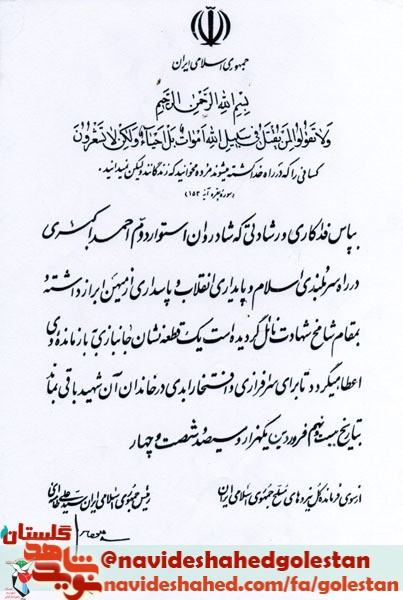 جمهوری اسلامی ایران
بسم الله الرحمن الرحیم
ولا تقولوا لمن یقتل فی سبیل الله اموات بل احیاء ولکن لا تشعرون
کسانی را که در راه خدا کشته میشوند مرده نخوانید که زندگانند ولیکن نمیدانید.
(سوره بقره آیه ۱۵۳)
بپاس فداکاری و رشادتی که شادروان استوار دوم احمد اکبری
در راه سربلندی اسلام و پایداری انقلاب و پاسداری از میهن ابراز داشته و
بمقام شامخ شهادت نائل گردیده است یک قطعه نشان جانبازی به بازمانده وی
اعطا میگردد تا برای سرافرازی و افتخار ابدی در خاندان آن شهید باقی بماند
بتاریخ بیست و نهم فروردین یکهزار و سیصد و شصت و چهار
از سوی فرمانده کل نیروهای مسلح جمهوری اسلامی ایران
رئیس جمهوری اسلامی ایران سید علی خامنه‌ای
نوید شاهد گلستان
@navideshahedgolestan
navideshahed.com/fa/golestan